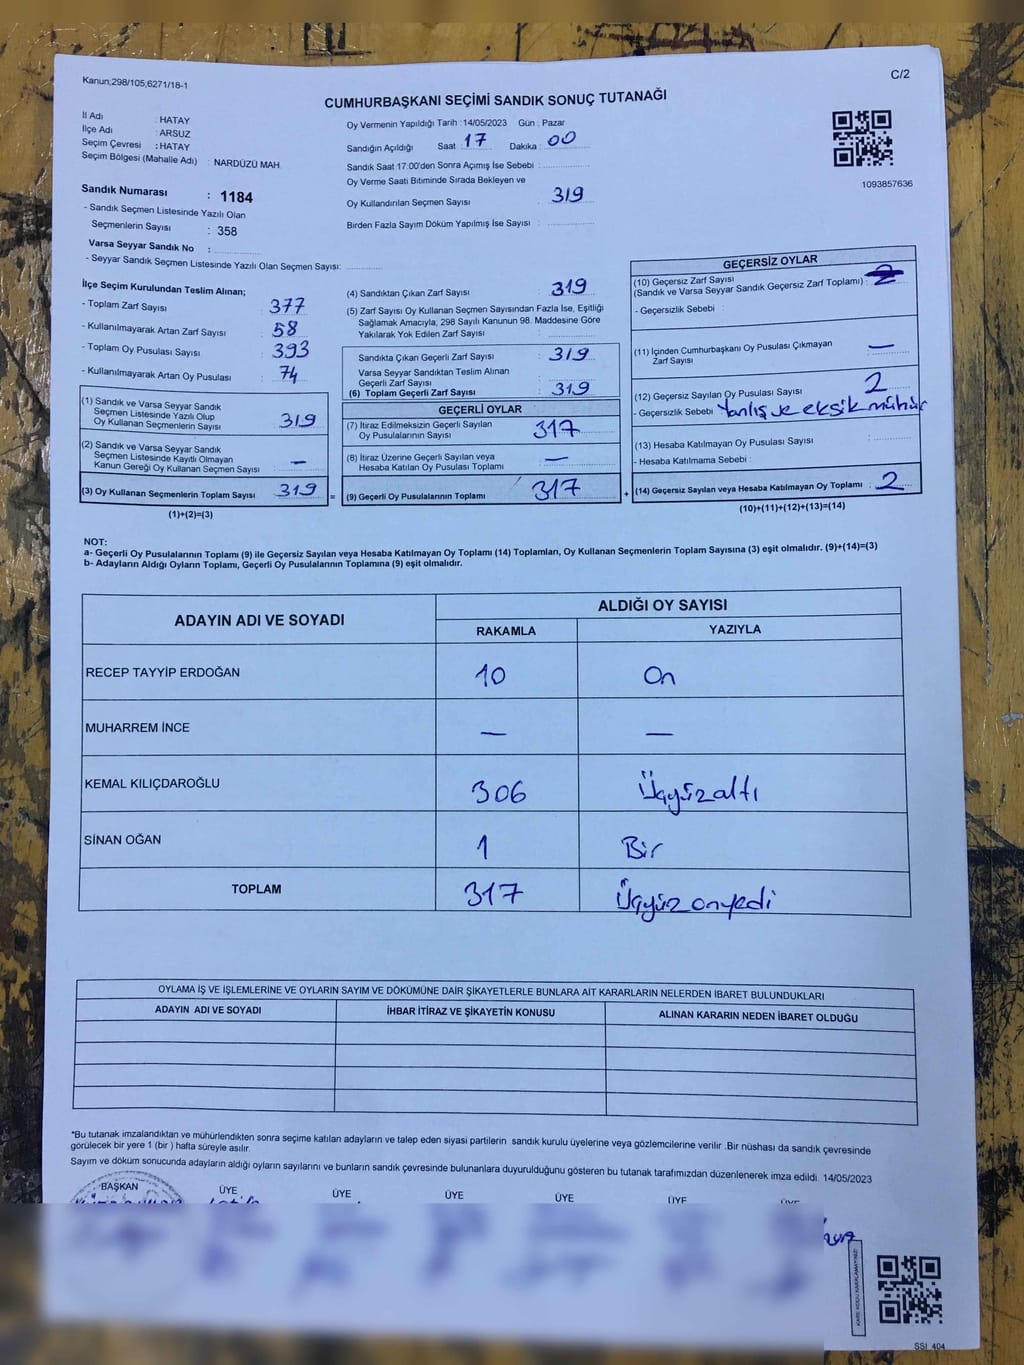 Kanun;298/105,6271/18-1
C/2
CUMHURBAŞKANI SEÇİMİ SANDIK SONUÇ TUTANAĞI
İl Adı : HATAY
İlçe Adı : ARSUZ
Seçim Çevresi : HATAY
Seçim Bölgesi (Mahalle Adı) : NARDÜZÜ MAH.
Sandık Numarası : 1184
- Sandık Seçmen Listesinde Yazılı Olan
Seçmenlerin Sayısı : 358
Varsa Seyyar Sandık No :
- Seyyar Sandık Seçmen Listesinde Yazılı Olan Seçmen Sayısı:
Oy Vermenin Yapıldığı Tarih :14/05/2023 Gün : Pazar
Sandığın Açıldığı Saat : 17 Dakika : 00
Sandık Saat 17:00'den Sonra Açımış İse Sebebi :
Oy Verme Saati Bitiminde Sırada Bekleyen ve
Oy Kullandırılan Seçmen Sayısı : 319
Birden Fazla Sayım Döküm Yapılmış İse Sayısı :
1093857636
İlçe Seçim Kurulundan Teslim Alınan;
- Toplam Zarf Sayısı : 377
- Kullanılmayarak Artan Zarf Sayısı : 58
- Toplam Oy Pusulası Sayısı : 393
- Kullanılmayarak Artan Oy Pusulası : 74
(1) Sandık ve Varsa Seyyar Sandık
Seçmen Listesinde Yazılı Olup
Oy Kullanan Seçmenlerin Sayısı : 319
(2) Sandık ve Varsa Seyyar Sandık
Seçmen Listesinde Kayıtlı Olmayan
Kanun Gereği Oy Kullanan Seçmen Sayısı : —
(3) Oy Kullanan Seçmenlerin Toplam Sayısı : 319
(1)+(2)=(3)
=
(4) Sandıktan Çıkan Zarf Sayısı : 319
(5) Zarf Sayısı Oy Kullanan Seçmen Sayısından Fazla İse, Eşitliği
Sağlamak Amacıyla, 298 Sayılı Kanunun 98. Maddesine Göre
Yakılarak Yok Edilen Zarf Sayısı :
Sandıkta Çıkan Geçerli Zarf Sayısı : 319
Varsa Seyyar Sandıktan Teslim Alınan
Geçerli Zarf Sayısı :
(6) Toplam Geçerli Zarf Sayısı : 319
GEÇERLİ OYLAR
(7) İtiraz Edilmeksizin Geçerli Sayılan
Oy Pusulalarının Sayısı : 317
(8) İtiraz Üzerine Geçerli Sayılan veya
Hesaba Katılan Oy Pusulası Toplamı : —
(9) Geçerli Oy Pusulalarının Toplamı : 317
+
GEÇERSİZ OYLAR
(10) Geçersiz Zarf Sayısı
(Sandık ve Varsa Seyyar Sandık Geçersiz Zarf Toplamı) :
- Geçersizlik Sebebi :
(11) İçinden Cumhurbaşkanı Oy Pusulası Çıkmayan
Zarf Sayısı : —
(12) Geçersiz Sayılan Oy Pusulası Sayısı : 2
- Geçersizlik Sebebi : Yanlış ve eksik mühür
(13) Hesaba Katılmayan Oy Pusulası Sayısı :
- Hesaba Katılmama Sebebi :
(14) Geçersiz Sayılan veya Hesaba Katılmayan Oy Toplamı : 2
(10)+(11)+(12)+(13)=(14)
NOT:
a- Geçerli Oy Pusulalarının Toplamı (9) ile Geçersiz Sayılan veya Hesaba Katılmayan Oy Toplamı (14) Toplamları, Oy Kullanan Seçmenlerin Toplam Sayısına (3) eşit olmalıdır. (9)+(14)=(3)
b- Adayların Aldığı Oyların Toplamı, Geçerli Oy Pusulalarının Toplamına (9) eşit olmalıdır.
ADAYIN ADI VE SOYADI
ALDIĞI OY SAYISI
RAKAMLA YAZIYLA
RECEP TAYYİP ERDOĞAN 10 On
MUHARREM İNCE — —
KEMAL KILIÇDAROĞLU 306 Üçyüzaltı
SİNAN OĞAN 1 Bir
TOPLAM 317 Üçyüzonyedi
OYLAMA İŞ VE İŞLEMLERİNE VE OYLARIN SAYIM VE DÖKÜMÜNE DAİR ŞİKAYETLERLE BUNLARA AİT KARARLARIN NELERDEN İBARET BULUNDUKLARI
ADAYIN ADI VE SOYADI İHBAR İTİRAZ VE ŞİKAYETİN KONUSU ALINAN KARARIN NEDEN İBARET OLDUĞU
*Bu tutanak imzalandıktan ve mühürlendikten sonra seçime katılan adayların ve talep eden siyasi partilerin sandık kurulu üyelerine veya gözlemcilerine verilir .Bir nüshası da sandık çevresinde
görülecek bir yere 1 (bir ) hafta süreyle asılır.
Sayım ve döküm sonucunda adayların aldığı oyların sayılarını ve bunların sandık çevresinde bulunanlara duyurulduğunu gösteren bu tutanak tarafımızdan düzenlenerek imza edildi. 14/05/2023
BAŞKAN ÜYE ÜYE ÜYE ÜYE ÜYE ÜYE
SSİ_404